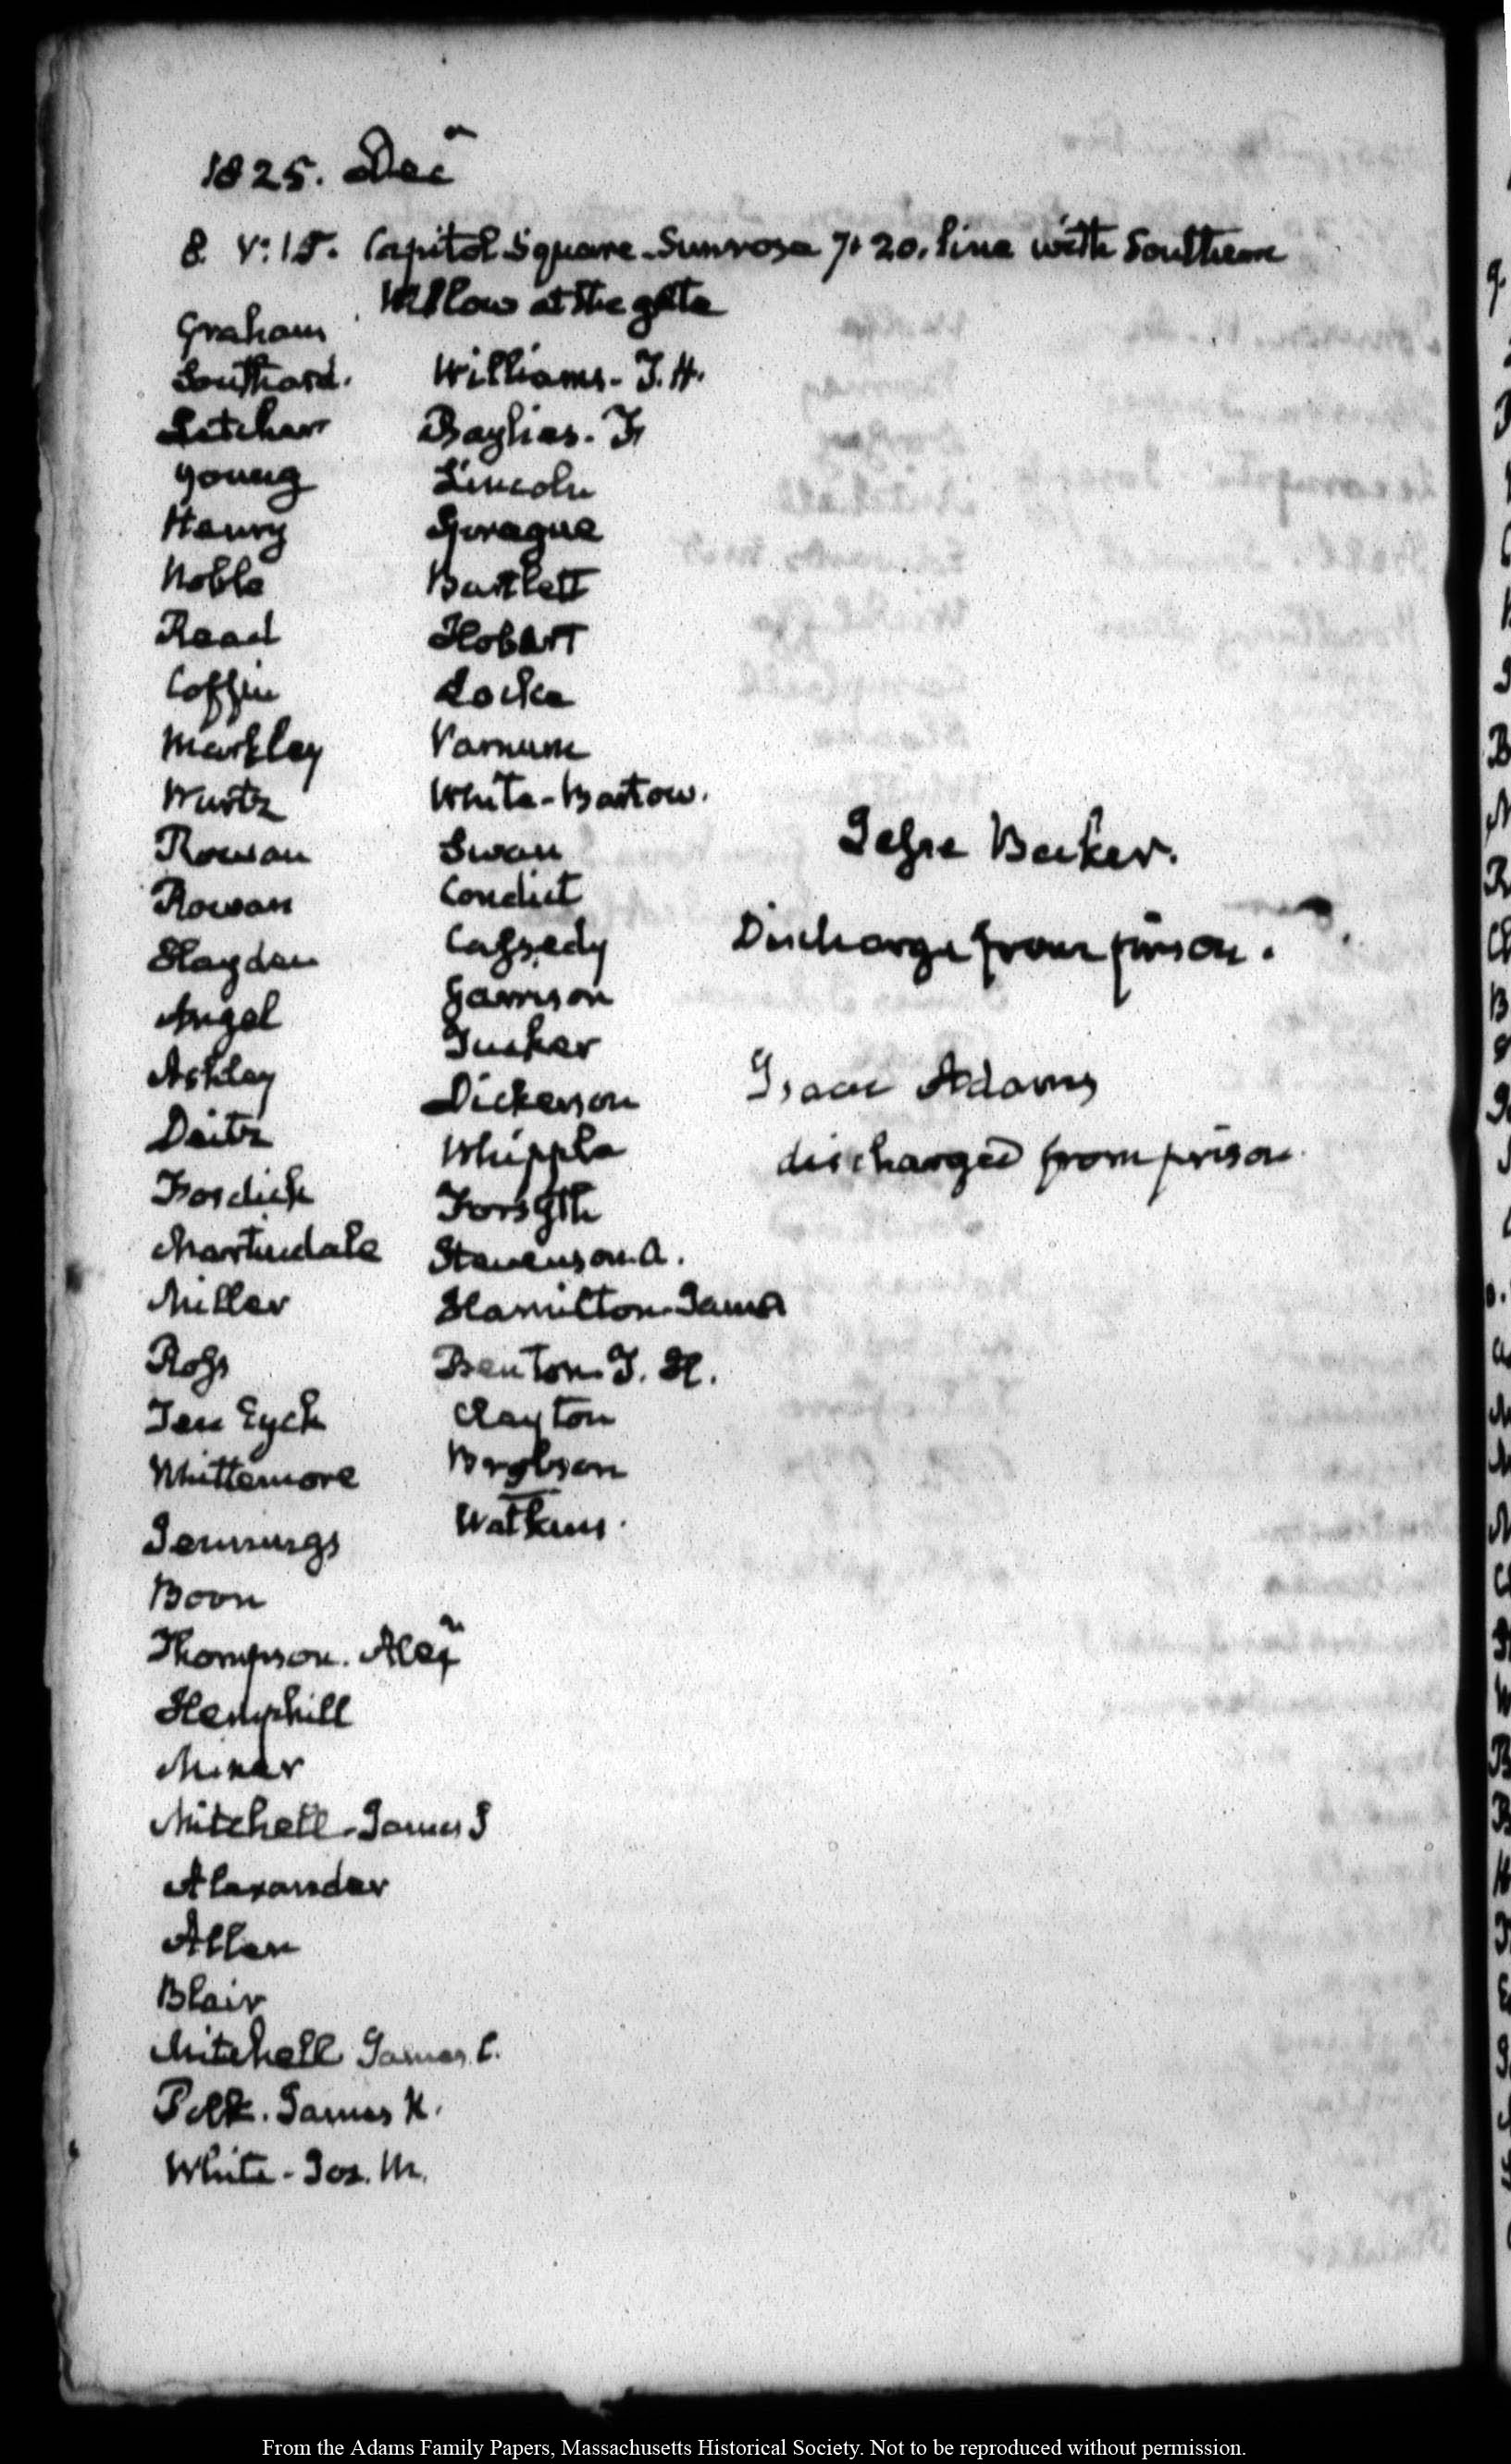 1825. Decr
8. V:15. Capitol Square. Sunrose 7:20. line with Southern
Willow at the gate
Graham
Southard.
Letcher
Young
Henry
Noble
Read
Coffin
Markley
Wurtz
Rowan
Rowan
Hayden
Angel
Ashley
Deitz
Fosdick
Martindale
Miller
Ross
Ten Eyck
Whittemore
Jennings
Boon
Thompson. Alexr
Hemphill
Miner
Mitchell. James S
Alexander
Allen
Blair
Mitchell James C.
Polk. James K.
White. Jos. M.
Williams. T. H.
Baylies. F
Lincoln
Sprague
Bartlett
Hobart
Locke
Varnum
White. Bartow.
Swan
Condict
Cassedy
Garrison
Tucker
Dickerson
Whipple
Forsyth
Stevenson. A.
Hamilton. James
Benton. T. H.
Clayton
Brobson
Watkins.
Jesse Becker.
Discharge from prison.
Isaac Adams
discharged from prison.
From the Adams Family Papers, Massachusetts Historical Society. Not to be reproduced without permission.